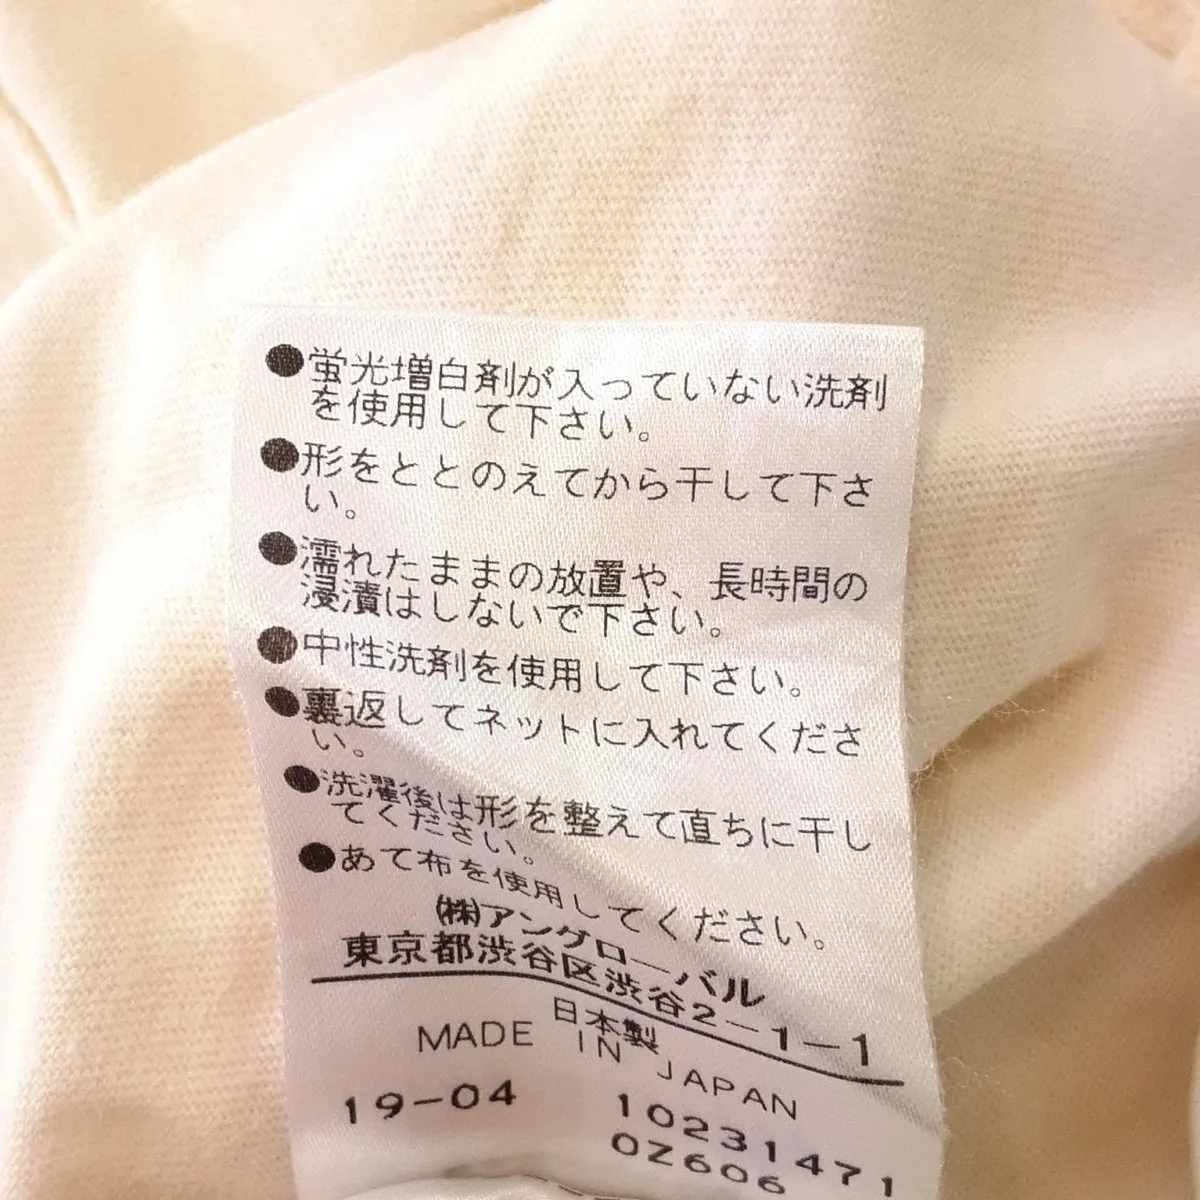 ●蛍光増白剤が入っていない洗剤
を使用して下さい。
●形をととのえてから干して下さ
い。
●濡れたままの放置や、長時間の
浸漬はしないで下さい。
●中性洗剤を使用して下さい。
●裏返してネットに入れてくださ
い。
●洗濯後は形を整えて直ちに干し
てください。
●あて布を使用してください。
㈱アングローバル
東京都渋谷区渋谷2-1-1
日本製
MADE IN JAPAN
19-04 10231471
0Z606